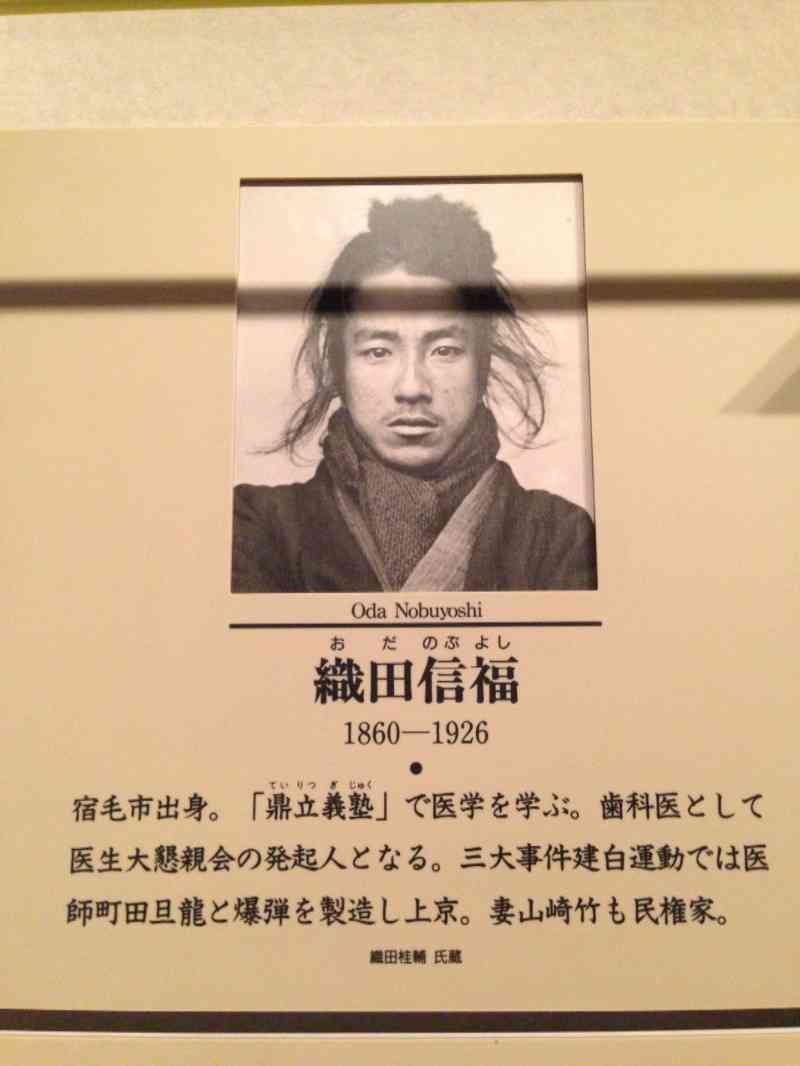 Oda Nobuyoshi
お だ のぶ よし
織田信福
1860—1926
●
てい りつ ぎ じゅく
宿毛市出身。「鼎立義塾」で医学を学ぶ。歯科医として
医生大懇親会の発起人となる。三大事件建白運動では医
師町田旦龍と爆弾を製造し上京。妻山崎竹も民権家。
織田桂輔 氏蔵